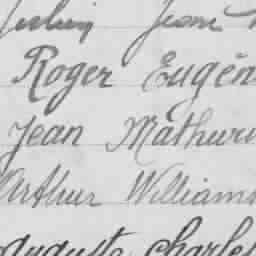 Roger Eugèn
Jean Mathuri
Arthur Williams
Auguste Charles